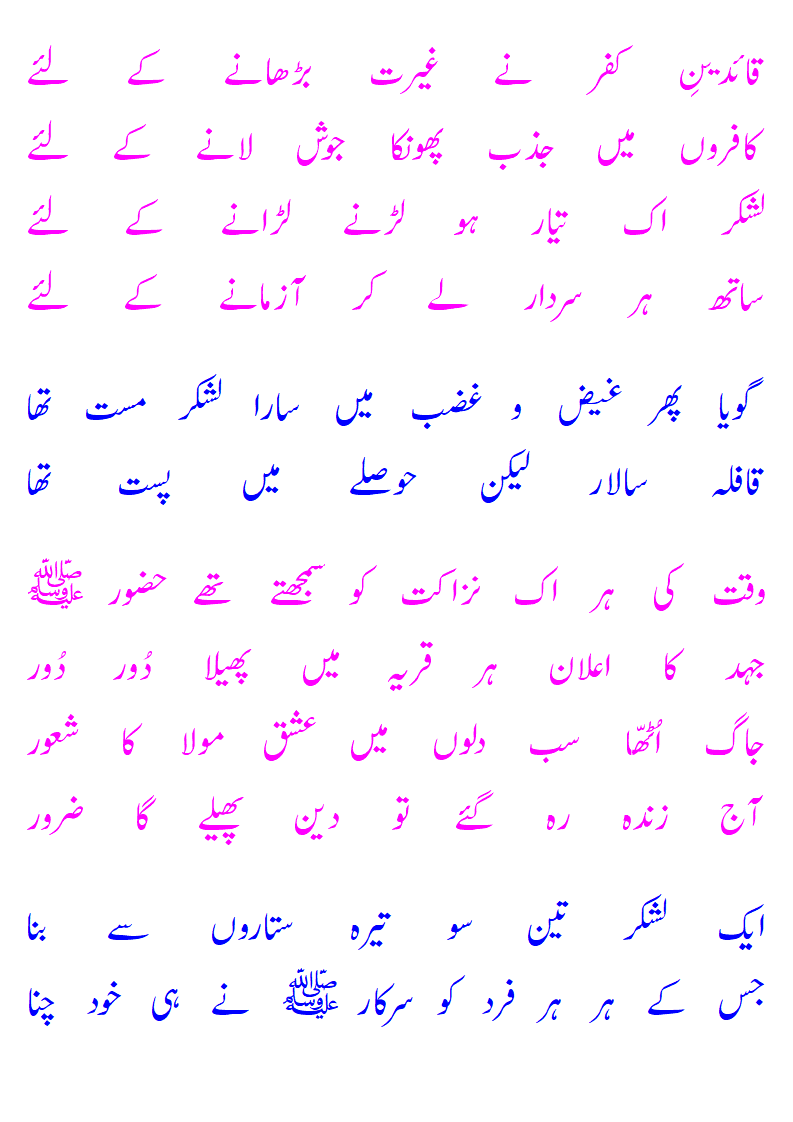 قائدینِ کفر نے غیرت بڑھانے کے لئے
کافروں میں جذب پھونکا جوش لانے کے لئے
لشکر اک تیّار ہو لڑنے لڑانے کے لئے
ساتھ ہر سردار لے کر آزمانے کے لئے
گویا پھر غیض و غضب میں سارا لشکر مست تھا
قافلہ سالار لیکن حوصلے میں پست تھا
وقت کی ہر اک نزاکت کو سمجھتے تھے حضور ﷺ
جہد کا اعلان ہر قریہ میں پھیلا دُور دُور
جاگ اُٹھّا سب دلوں میں عشق مولا کا شعور
آج زندہ رہ گئے تو دین پھیلے گا ضرور
ایک لشکر تین سو تیرہ ستاروں سے بنا
جس کے ہر ہر فرد کو سرکار ﷺ نے ہی خود چنا